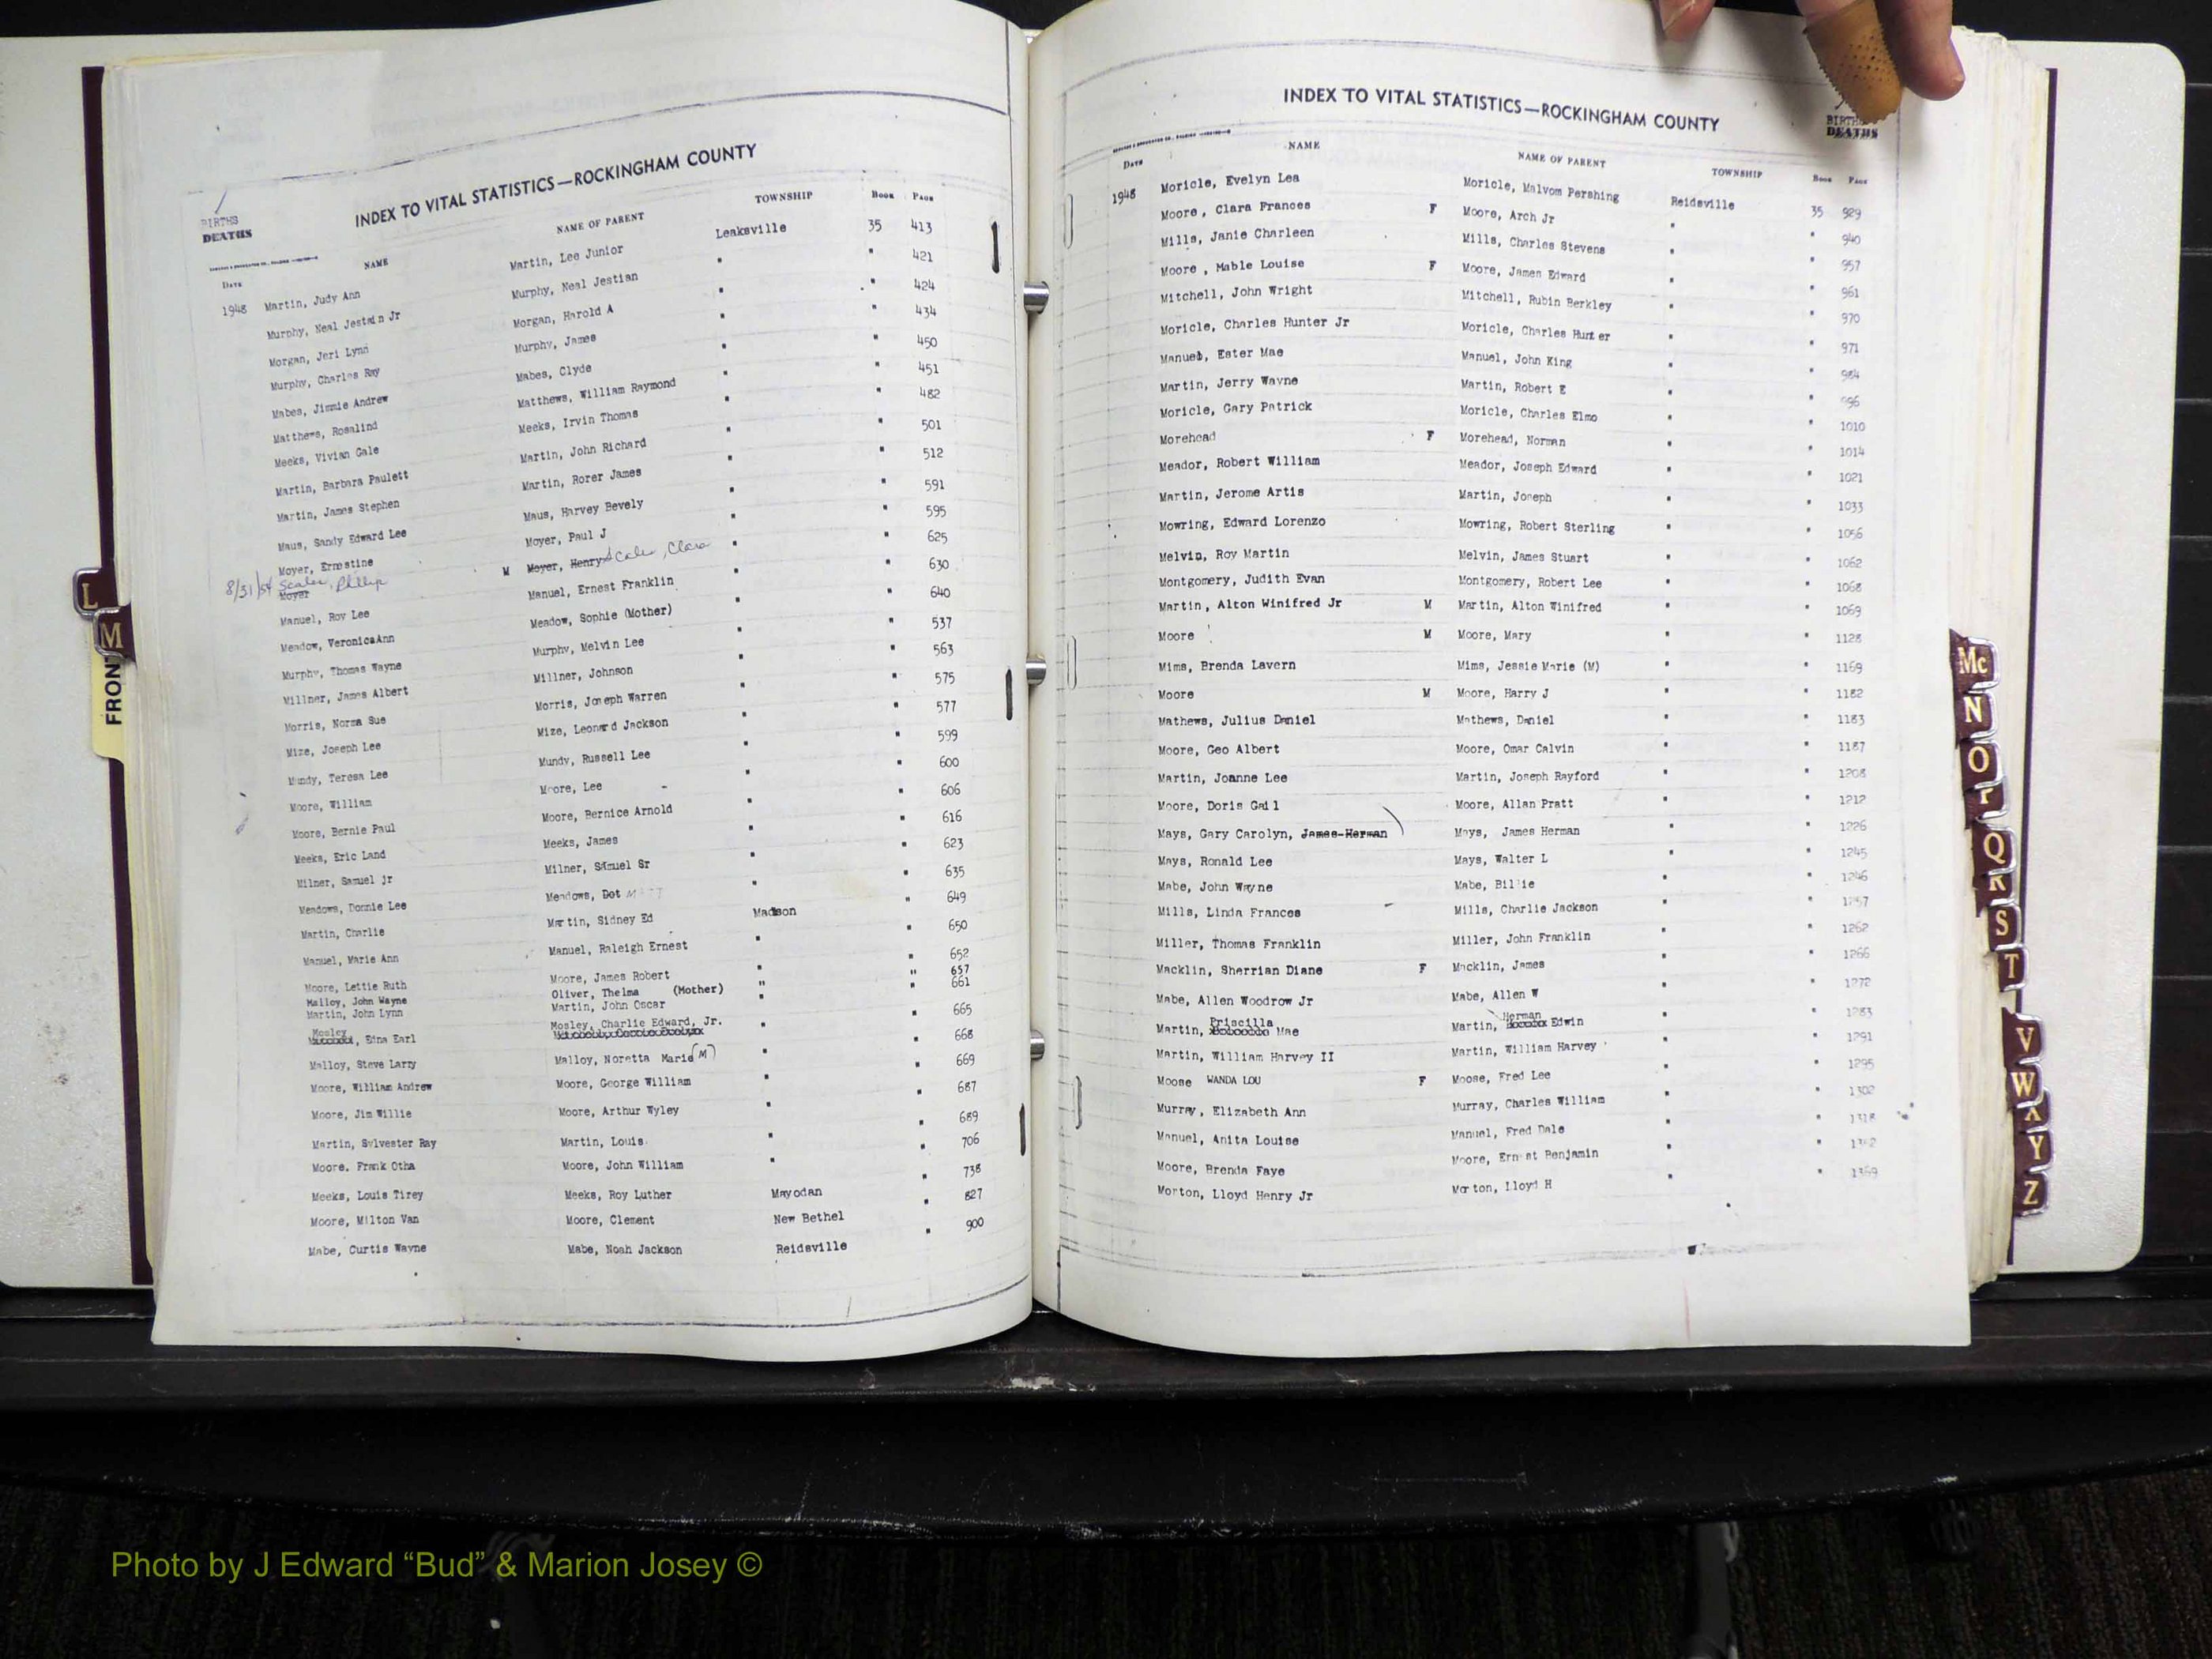 INDEX TO VITAL STATISTICS—ROCKINGHAM COUNTY
BIRTHS
DEATHS
DATE NAME NAME OF PARENT TOWNSHIP BOOK PAGE
1948 Martin, Judy Ann Martin, Lee Junior Leaksville 35 413
Murphy, Neal Jestain Jr Murphy, Neal Jestian " " 421
Morgan, Jeri Lynn Morgan, Harold A " " 424
Murphy, Charles Ray Murphy, James " " 434
Mabes, Jimmie Andrew Mabes, Clyde " " 450
Matthews, Rosalind Matthews, William Raymond " " 451
Meeks, Vivian Gale Meeks, Irvin Thomas " " 482
Martin, Barbara Paulett Martin, John Richard " " 501
Martin, James Stephen Martin, Rorer James " " 512
Maus, Sandy Edward Lee Maus, Harvey Bevely " " 591
Moyer, Ernestine Moyer, Paul J " " 595
8/31/54 Scales, Phillip
Moyer M Moyer, Henry Scales, Clara " " 625
Manuel, Roy Lee Manuel, Ernest Franklin " " 630
Meadow, Veronica Ann Meadow, Sophie (Mother) " " 640
Murphy, Thomas Wayne Murphy, Melvin Lee " " 537
Millner, James Albert Millner, Johnson " " 563
Morris, Norma Sue Morris, Joseph Warren " " 575
Mize, Joseph Lee Mize, Leonard Jackson " " 577
Mundy, Teresa Lee Mundy, Russell Lee " " 599
Moore, William Moore, Lee " " 600
Moore, Bernie Paul Moore, Bernice Arnold " " 606
Meeks, Eric Land Meeks, James " " 616
Milner, Samuel jr Milner, Samuel Sr " " 623
Meadows, Donnie Lee Meadows, Dot " " 635
Martin, Charlie Martin, Sidney Ed Madison " 649
Manuel, Marie Ann Manuel, Raleigh Ernest " " 650
Moore, Lettie Ruth Moore, James Robert " " 652
Malloy, John Wayne Oliver, Thelma (Mother) " " 657
Martin, John Lynn Martin, John Oscar " " 661
Mosley, Edna Earl Mosley, Charlie Edward, Jr. " " 665
Malloy, Steve Larry Malloy, Noretta Marie (M) " " 668
Moore, William Andrew Moore, George William " " 669
Moore, Jim Willie Moore, Arthur Wyley " " 687
Martin, Sylvester Ray Martin, Louis " " 689
Moore, Frank Otha Moore, John William " " 706
Meeks, Louis Tirey Meeks, Roy Luther Mayodan " 738
Moore, Milton Van Moore, Clement New Bethel " 827
Mabe, Curtis Wayne Mabe, Noah Jackson Reidsville " 900
L
M
FRONT
INDEX TO VITAL STATISTICS—ROCKINGHAM COUNTY
BIRTHS
DEATHS
DATE NAME NAME OF PARENT TOWNSHIP BOOK PAGE
1948 Moricle, Evelyn Lea Moricle, Malvom Pershing Reidsville 35 929
Moore, Clara Frances F Moore, Arch Jr " " 940
Mills, Janie Charleen Mills, Charles Stevens " " 957
Moore, Mable Louise F Moore, James Edward " " 961
Mitchell, John Wright Mitchell, Rubin Berkley " " 970
Moricle, Charles Hunter Jr Moricle, Charles Hunter " " 971
Manuel, Ester Mae Manuel, John King " " 984
Martin, Jerry Wayne Martin, Robert E " " 996
Moricle, Gary Patrick Moricle, Charles Elmo " " 1010
Morehead F Morehead, Norman " " 1014
Meador, Robert William Meador, Joseph Edward " " 1021
Martin, Jerome Artis Martin, Joseph " " 1033
Mowring, Edward Lorenzo Mowring, Robert Sterling " " 1056
Melvin, Roy Martin Melvin, James Stuart " " 1062
Montgomery, Judith Evan Montgomery, Robert Lee " " 1068
Martin, Alton Winifred Jr M Martin, Alton Winifred " " 1069
Moore M Moore, Mary " " 1128
Mims, Brenda Lavern Mims, Jessie Marie (M) " " 1169
Moore M Moore, Harry J " " 1182
Mathews, Julius Daniel Mathews, Daniel " " 1183
Moore, Geo Albert Moore, Omar Calvin " " 1187
Martin, Joanne Lee Martin, Joseph Rayford " " 1208
Moore, Doris Gail Moore, Allan Pratt " " 1212
Mays, Gary Carolyn, James Herman Mays, James Herman " " 1226
Mays, Ronald Lee Mays, Walter L " " 1245
Mabe, John Wayne Mabe, Billie " " 1246
Mills, Linda Frances Mills, Charlie Jackson " " 1257
Miller, Thomas Franklin Miller, John Franklin " " 1262
Macklin, Sherrian Diane F Macklin, James " " 1266
Mabe, Allen Woodrow Jr Mabe, Allen W " " 1272
Martin, Priscilla Mae Martin, Herman Edwin " " 1283
Martin, William Harvey II Martin, William Harvey " " 1291
Moose WANDA LOU F Moose, Fred Lee " " 1295
Murray, Elizabeth Ann Murray, Charles William " " 1302
Manuel, Anita Louise Manuel, Fred Dale " " 1318
Moore, Brenda Faye Moore, Ernest Benjamin " "
Morton, Lloyd Henry Jr Morton, Lloyd H " " 1369
Mc
N
O
P
Q
R
S
T
V
W
X
Y
Z
Photo by J Edward “Bud” & Marion Josey ©